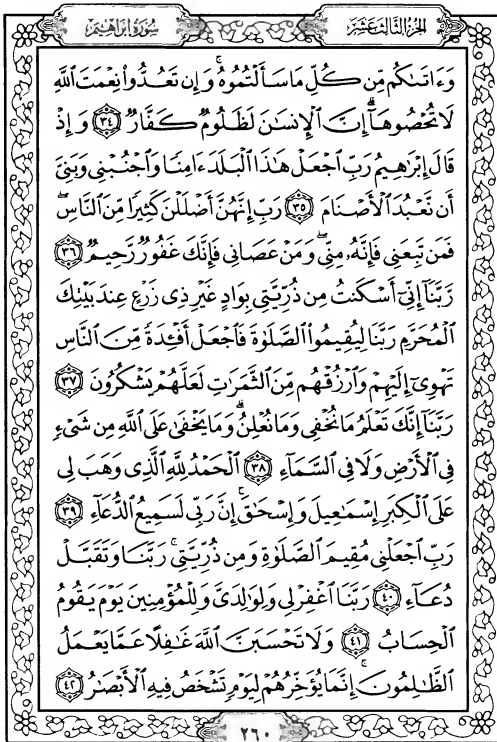 سُورَةُ إِبْرَاهِيم
الجُزْءُ الثَّالِثَ عَشَرَ
وَءَاتَىٰكُم مِّن كُلِّ مَا سَأَلْتُمُوهُ ۚ وَإِن تَعُدُّوا۟ نِعْمَتَ ٱللَّهِ
لَا تُحْصُوهَآ ۗ إِنَّ ٱلْإِنسَـٰنَ لَظَلُومٌ كَفَّارٌ ٣٤ وَإِذْ
قَالَ إِبْرَٰهِيمُ رَبِّ ٱجْعَلْ هَـٰذَا ٱلْبَلَدَ ءَامِنًا وَٱجْنُبْنِى وَبَنِىَّ
أَن نَّعْبُدَ ٱلْأَصْنَامَ ٣٥ رَبِّ إِنَّهُنَّ أَضْلَلْنَ كَثِيرًا مِّنَ ٱلنَّاسِ ۖ
فَمَن تَبِعَنِى فَإِنَّهُۥ مِنِّى ۖ وَمَنْ عَصَانِى فَإِنَّكَ غَفُورٌ رَّحِيمٌ ٣٦
رَّبَّنَآ إِنِّىٓ أَسْكَنتُ مِن ذُرِّيَّتِى بِوَادٍ غَيْرِ ذِى زَرْعٍ عِندَ بَيْتِكَ
ٱلْمُحَرَّمِ رَبَّنَا لِيُقِيمُوا۟ ٱلصَّلَوٰةَ فَٱجْعَلْ أَفْـِٔدَةً مِّنَ ٱلنَّاسِ
تَهْوِىٓ إِلَيْهِمْ وَٱرْزُقْهُم مِّنَ ٱلثَّمَرَٰتِ لَعَلَّهُمْ يَشْكُرُونَ ٣٧
رَبَّنَآ إِنَّكَ تَعْلَمُ مَا نُخْفِى وَمَا نُعْلِنُ ۗ وَمَا يَخْفَىٰ عَلَى ٱللَّهِ مِن شَىْءٍ
فِى ٱلْأَرْضِ وَلَا فِى ٱلسَّمَآءِ ٣٨ ٱلْحَمْدُ لِلَّهِ ٱلَّذِى وَهَبَ لِى
عَلَى ٱلْكِبَرِ إِسْمَـٰعِيلَ وَإِسْحَـٰقَ ۚ إِنَّ رَبِّى لَسَمِيعُ ٱلدُّعَآءِ ٣٩
رَبِّ ٱجْعَلْنِى مُقِيمَ ٱلصَّلَوٰةِ وَمِن ذُرِّيَّتِى ۚ رَبَّنَا وَتَقَبَّلْ
دُعَآءِ ٤٠ رَبَّنَا ٱغْفِرْ لِى وَلِوَٰلِدَىَّ وَلِلْمُؤْمِنِينَ يَوْمَ يَقُومُ
ٱلْحِسَابُ ٤١ وَلَا تَحْسَبَنَّ ٱللَّهَ غَـٰفِلًا عَمَّا يَعْمَلُ
ٱلظَّـٰلِمُونَ ۚ إِنَّمَا يُؤَخِّرُهُمْ لِيَوْمٍ تَشْخَصُ فِيهِ ٱلْأَبْصَـٰرُ ٤٢
٢٦٠